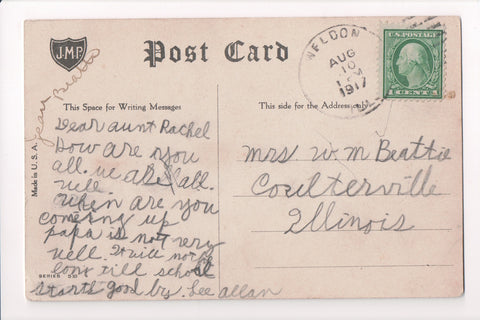 J.M.P.
Post Card
WELDON
AUG
10
1917
U.S. POSTAGE
1 CENT 1
Jean Beatty
This Space for Writing Messages
This side for the Address only
Made in U.S.A.
Dear aunt Rachel
How are you
all. we are all.
well.
when are you
comeing up
papa is not very
well. It will not be
long till school
starts good by. Lee allan
Mrs W M Beattie
Coulterville
Illinois
SERIES